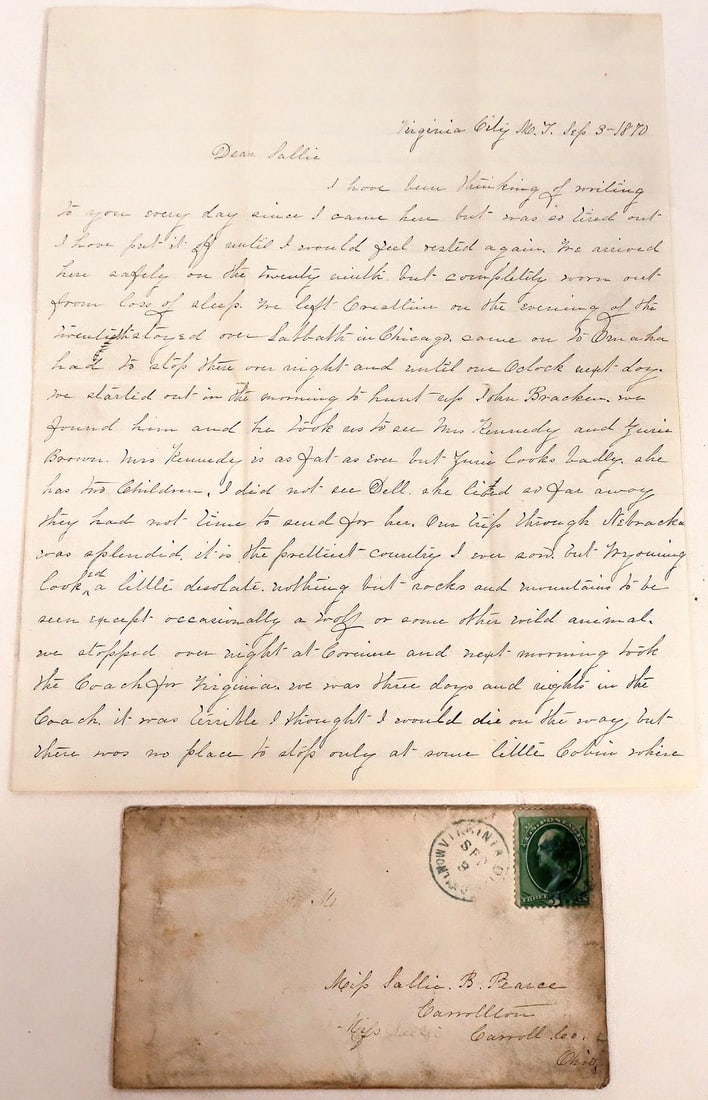 Virginia City M.T. Sep 3-1870
Dear Sallie
I have been thinking of writing
to you every day since I came here but was so tired out
I have put it off until I would feel rested again. We arrived
here safely on the twenty ninth. but completely worn out
from loss of sleep. We left Crestline on the evening of the
twentieth stayed over Sabbath in Chicago. came on to Omaha
had to stop there over night and until one Oclock next day.
we started out in the morning to hunt up John Bracken. we
found him and he took us to see Mrs Kennedy and
Brown. Mrs Kennedy is as fat as ever but looks badly. she
has two Children. I did not see Dell. she lived so far away
they had not time to send for her. Our trip through Nebraska
was splendid. it is the prettiest country I ever saw. but Wyoming
look ed a little desolate. nothing but rocks and mountains to be
seen except occasionally a wolf or some other wild animal.
we stopped over night at Corinne and next morning took
the Coach for Virginia. we was three days and nights in the
Coach. it was terrible I thought I would die on the way, but
there was no place to stop only at some little Cabin where
VIRGINIA CITY
SEP
MONTANA
U.S. POSTAGE
THREE CENTS
M
Miss Sallie. B. Pearce
Carrollton
Miss Sallie Carroll Co.
Ohio